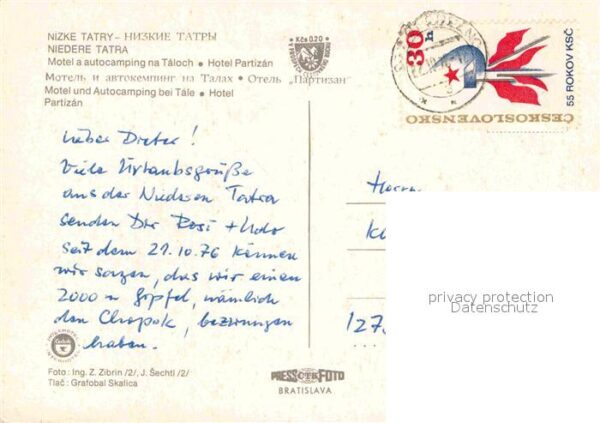 NIZKE TATRY – НИЗКИЕ ТАТРЫ
NIEDERE TATRA
Motel a autocamping na Táloch • Hotel Partizán
Мотель и автокемпинг на Талах • Отель „Партизан"
Motel und Autocamping bei Tále • Hotel
Partizán
Kčs 0,20
30 h
ČESKOSLOVENSKO
55 ROKOV KSČ
Lieber Dieter!
Viele Urlaubsgrüße
aus der Niederen Tatra
senden Dir Rosi + Udo
Seit dem 21.10.76 können
wir sagen, das wir einen
2000 m Gipfel, nämlich
den Chopok, bezwungen
haben.
Herrn
127
privacy protection
Datenschutz
Foto: Ing. Z. Zibrin /2/, J. Šechtl /2/
Tlač: Grafobal Skalica
PRESSFOTO
BRATISLAVA